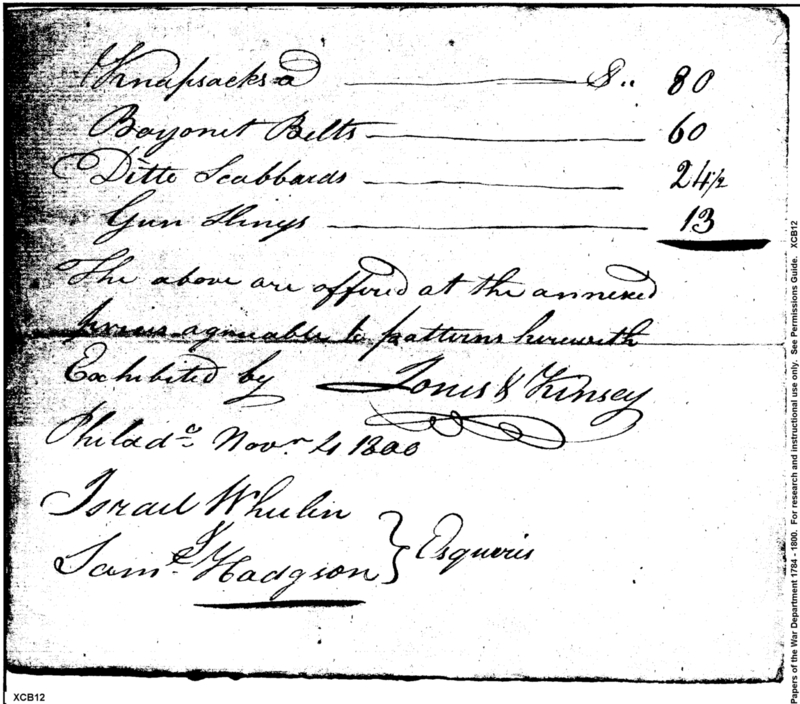 Knapsacks a $.. 80
Bayonet Belts 60
Ditto Scabbards 24 1/2
Gun Slings 13
The above are offered at the annexed
prices agreeable to patterns herewith
Exhibited by Jones & Kinsey
Philada. Novr. 4 1800
Israel Whelin
&
Saml. Hodgson } Esqueris
Papers of the War Department 1784 - 1800. For research and instructional use only. See Permissions Guide. XCB12
XCB12